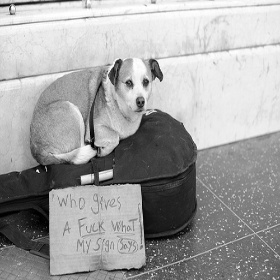 Who gives
A Fuck What
My Sign Says!